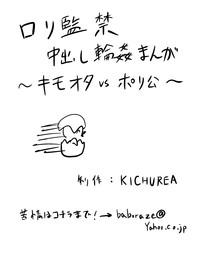 ロリ監禁
中出し輪姦まんが
～キモオタ vs ポリ公～
制作：KICHUREA
苦情はコチラまで!→baboraze@
Yahoo.co.jp